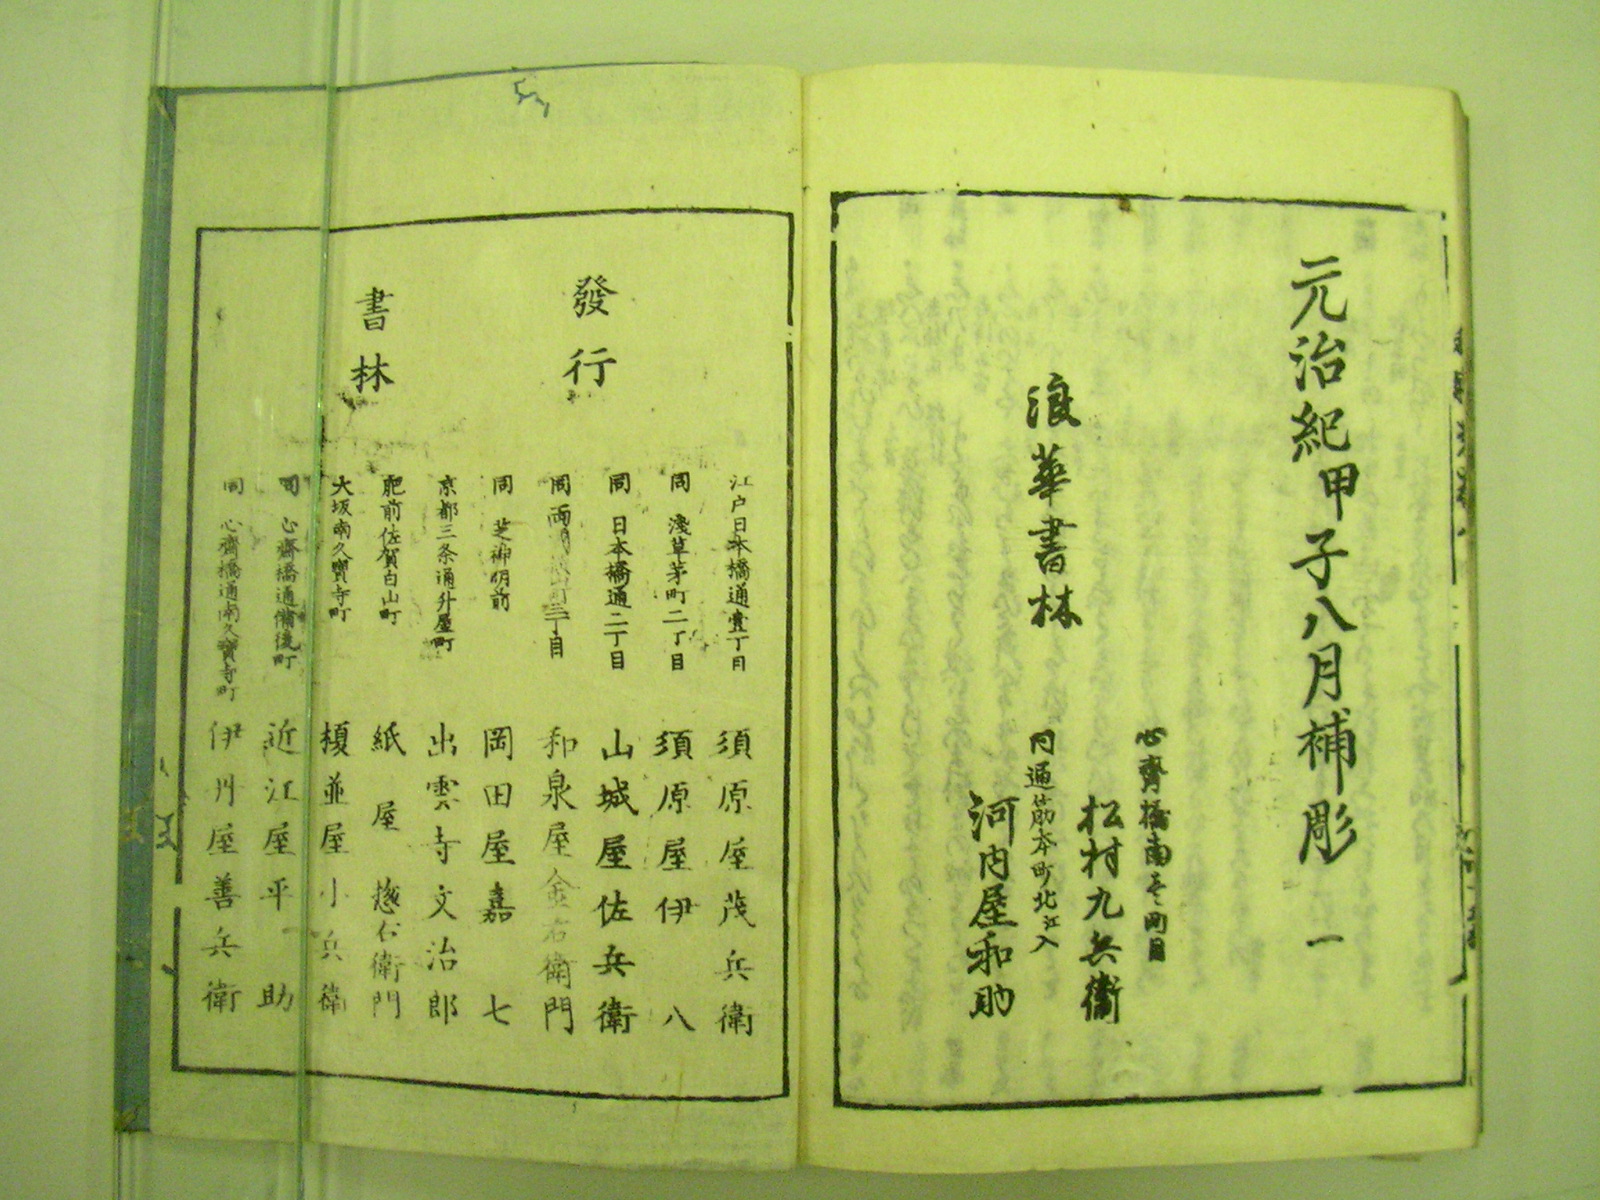 元治紀甲子八月補彫 一
浪華書林
心齋橋南壱町目
松村九兵衞
同通筋本町北江入
河内屋和助
發行
書林
江戸日本橋通壹丁目 須原屋茂兵衛
同 淺草茅町二丁目 須原屋伊八
同 日本橋通二丁目 山城屋佐兵衛
同 両 町三丁目 和泉屋金右衛門
同 芝神明前 岡田屋嘉七
京都三条通升屋町 出雲寺文治郎
肥前佐賀白山町 紙屋 右衛門
大坂南久寶寺町 榎並屋小兵衛
同 心齋橋通備後町 近江屋平助
同 心齋橋通南久寶寺町 伊丹屋善兵衛